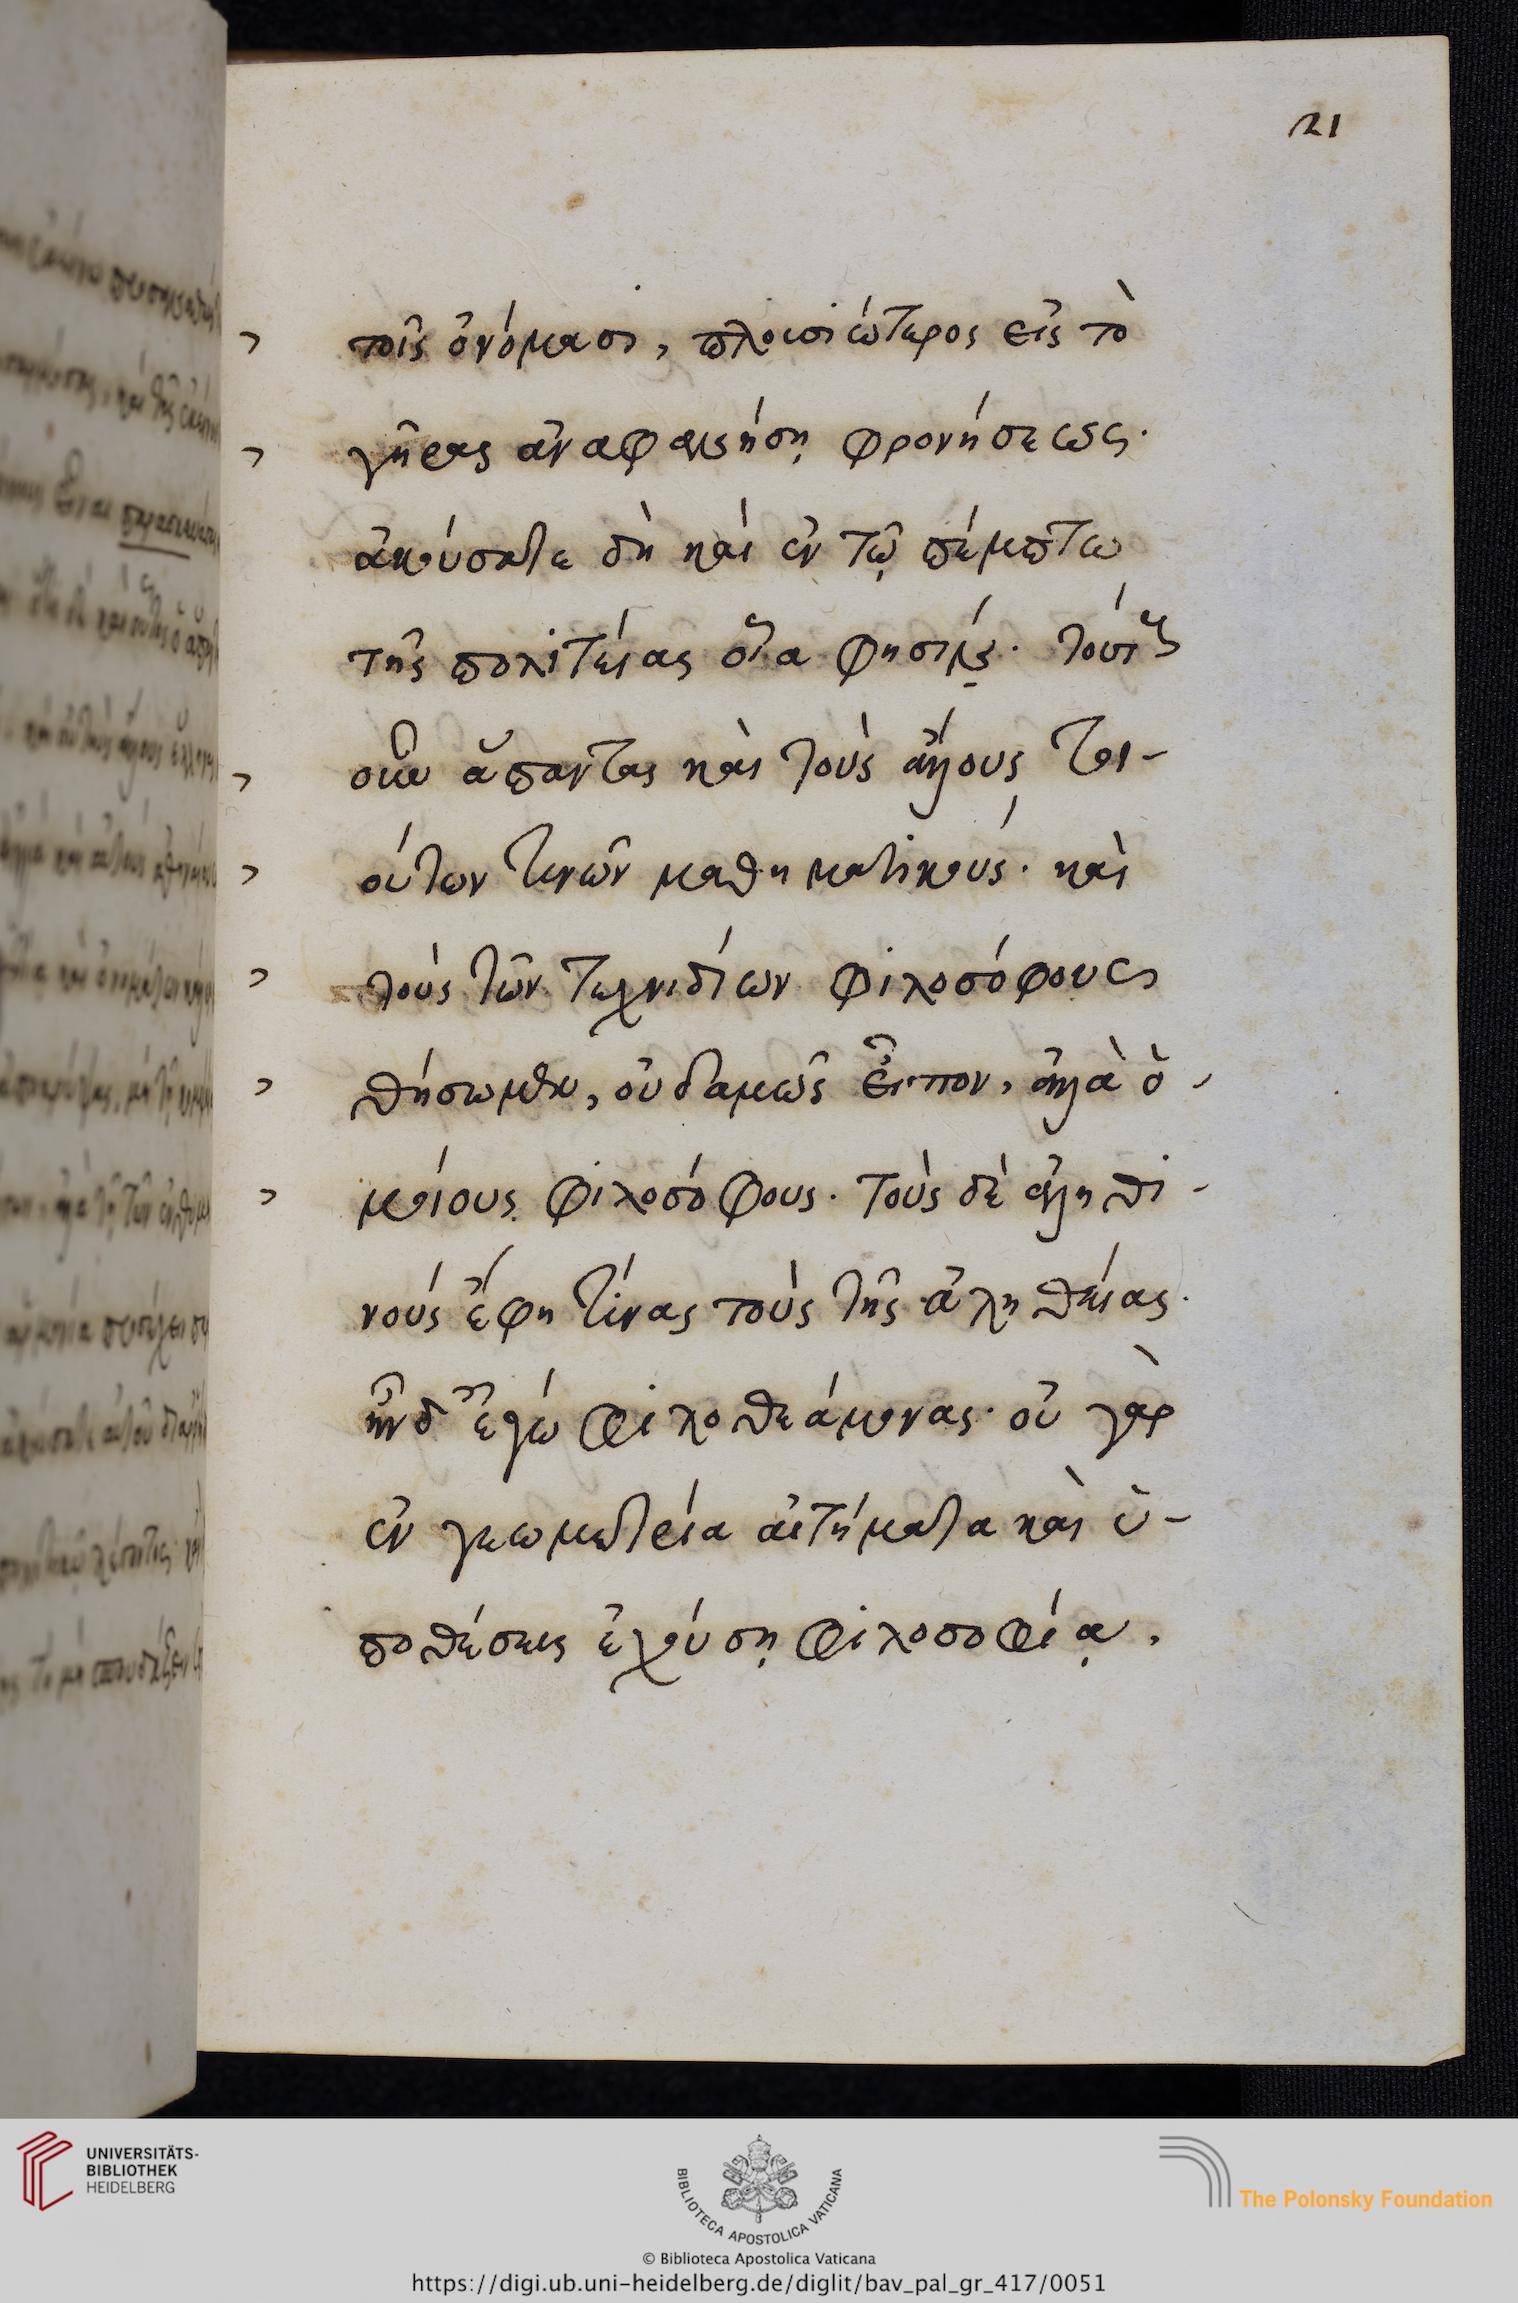 21
τοῖς ὀνόμασι, πλουσιώτερος εἰς τὸ
γῆρας ἀναφανήσῃ φρονήσεως·
ἀκούσατε δὴ καὶ ἐν τῷ πέμπτω
τῆς πολιτείας οἷα φησιν· τούτους
οὖν ἅπαντας καὶ τοὺς ἄλλους τοι-
ούτων τινῶν μαθηματικούς· καὶ
τοὺς τῶν τεχνιδίων φιλοσόφους
θήσωμεν, οὐδαμῶς εἶπον, ἀλλὰ ὁ-
μοίους φιλοσόφους. τοὺς δὲ ἀληθι-
νούς ἔφη τίνας τοὺς τῆς ἀληθείας·
ἦνδ ἐγώ φιλοθεάμονας· οὐ γὰρ
ἐν γεωμετρία αἰτήματα καὶ ὑ-
ποθέσεις ἐχούσῃ φιλοσοφίᾳ,
UNIVERSITÄTS-
BIBLIOTHEK
HEIDELBERG
BIBLIOTECA APOSTOLICA VATICANA
The Polonsky Foundation
© Biblioteca Apostolica Vaticana
https://digi.ub.uni-heidelberg.de/diglit/bav_pal_gr_417/0051